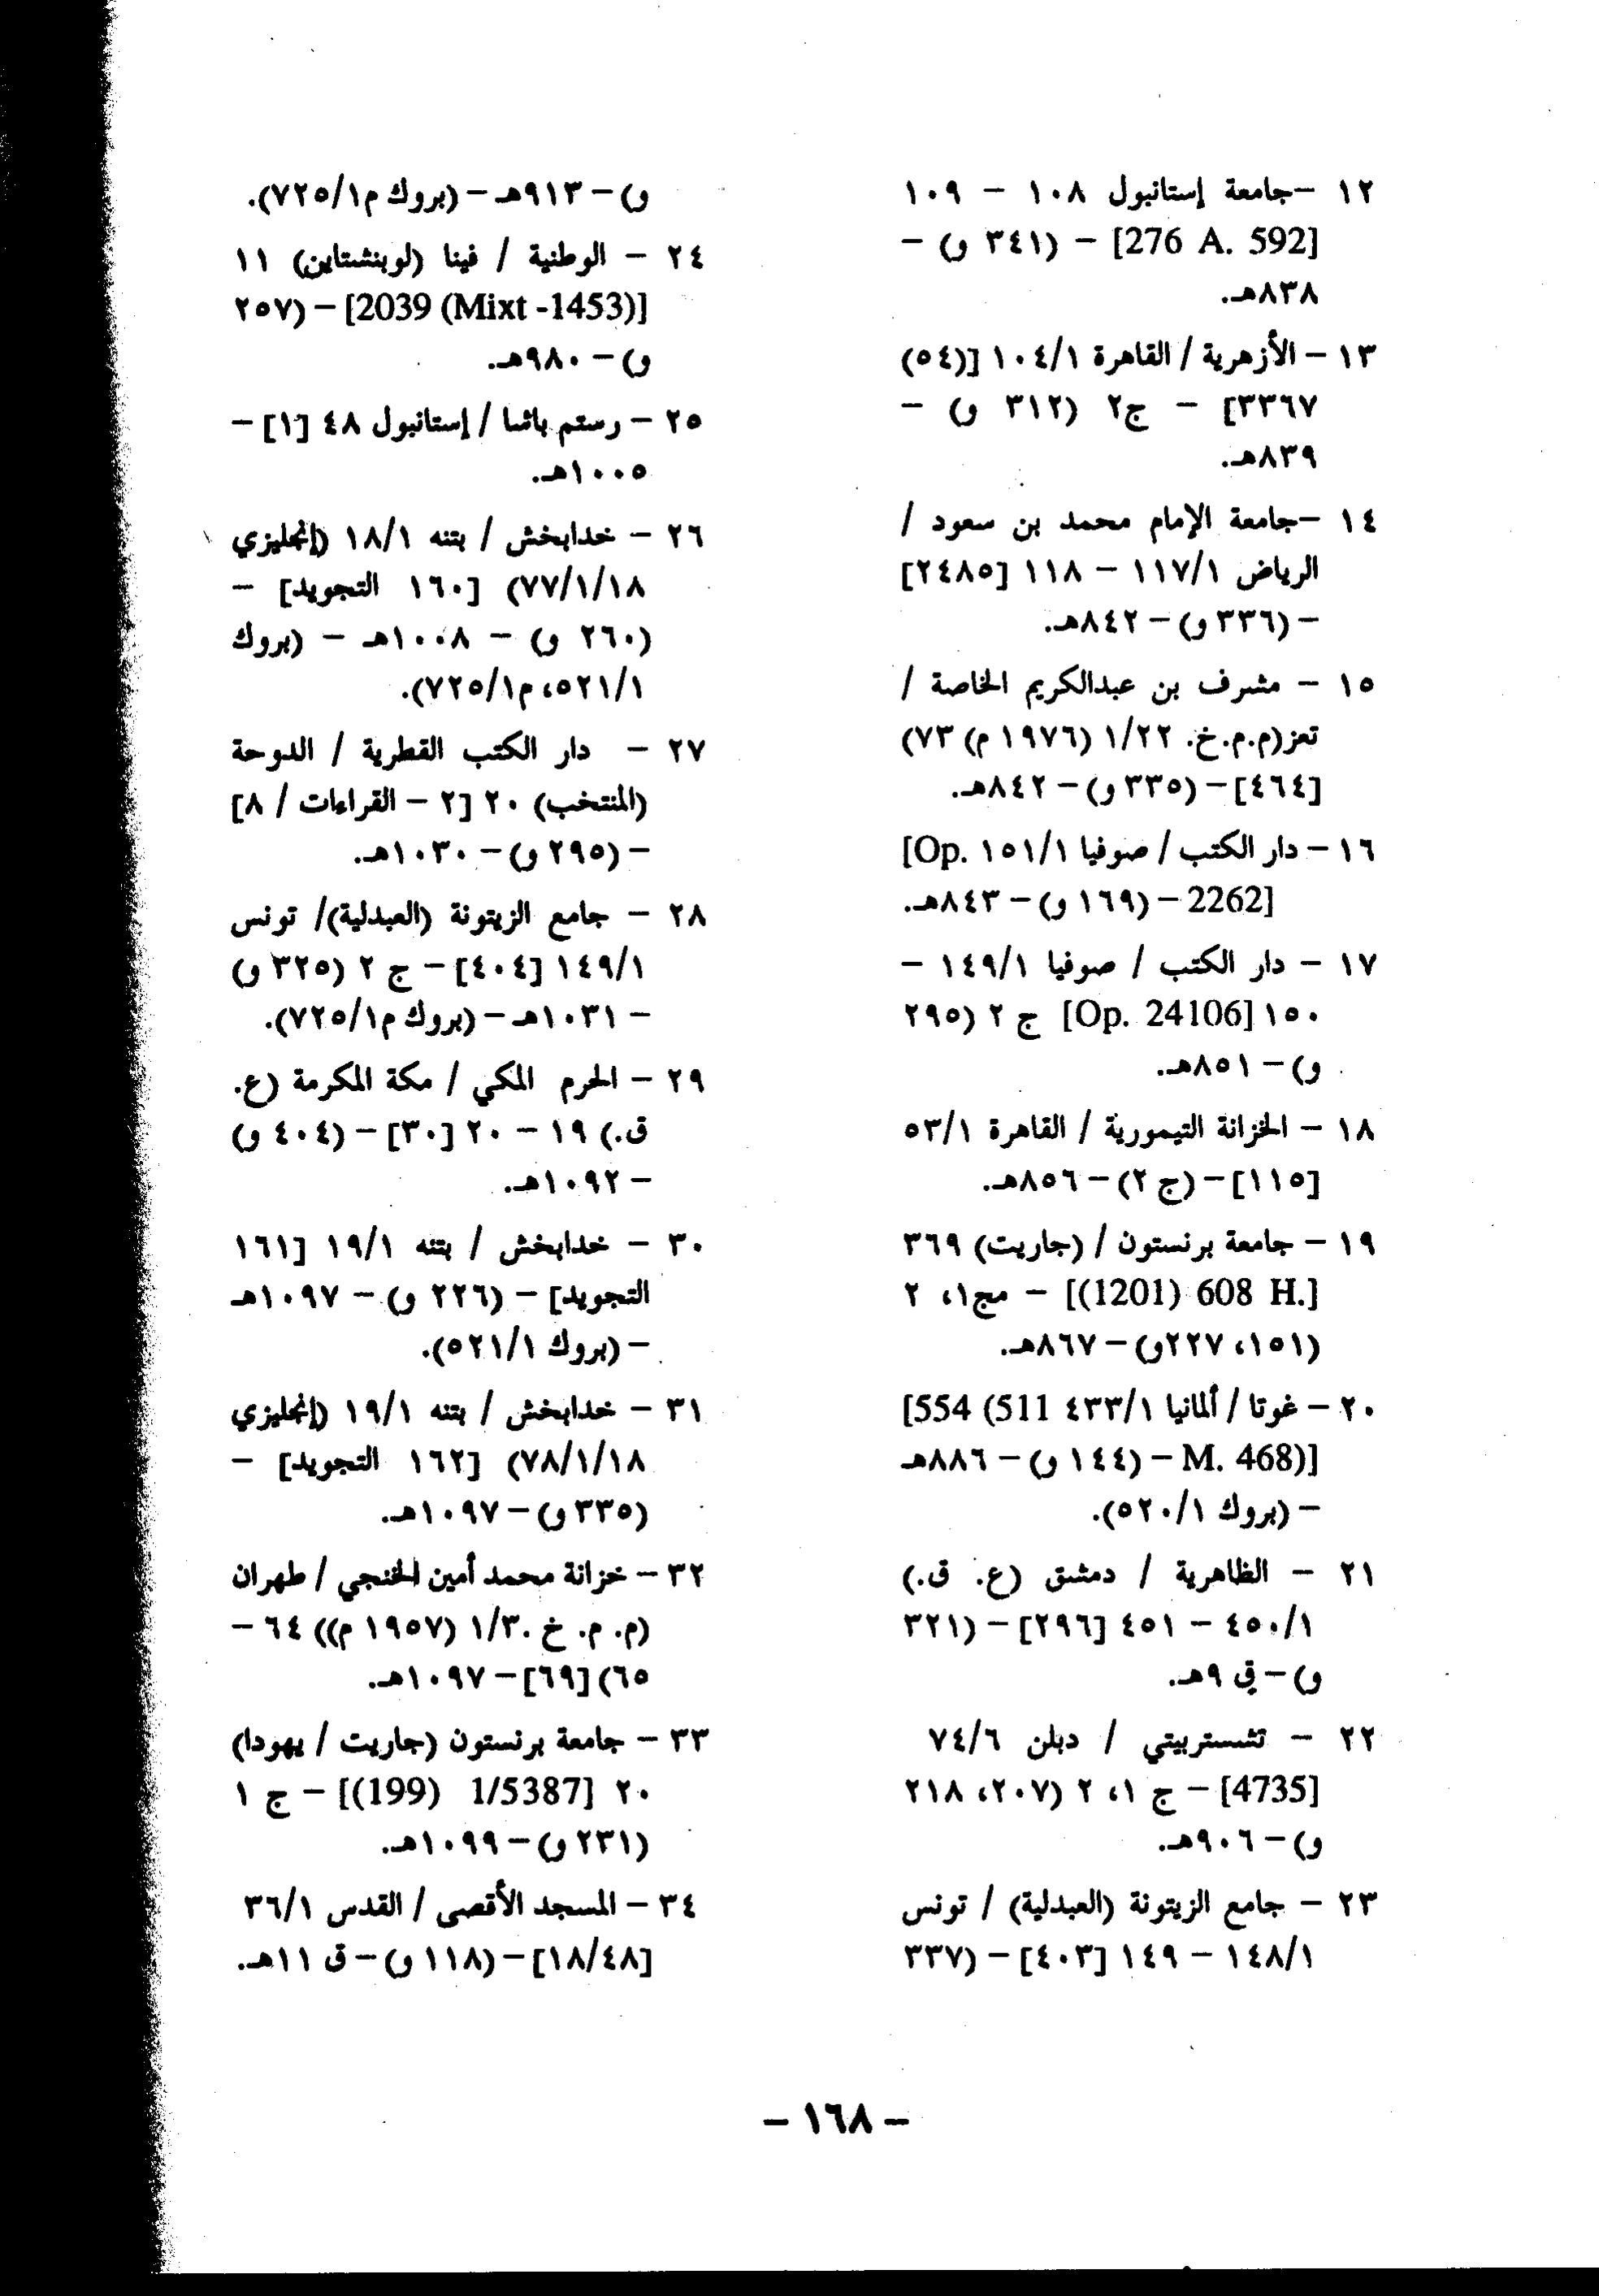 ١٢ –جامعة إستانبول ١٠٨ – ١٠٩
[276 A. 592] – (٣٤١ و) –
٨٣٨هـ.
١٣ – الأزهرية / القاهرة ١٠٤/١ [(٥٤)
٣٣٦٧] – ج٢ (٣١٢ و) –
٨٣٩هـ.
١٤ –جامعة الإمام محمد بن سعود /
الرياض ١١٧/١ – ١١٨ [٢٤٨٥]
– (٣٣٦ و) – ٨٤٢هـ.
١٥ – مشرف بن عبدالكريم الخاصة /
تعز(م.م.خ. ١/٢٢ (١٩٧٦ م) ٧٣)
[٤٦٤] – (٣٣٥ و) – ٨٤٢هـ.
١٦ – دار الكتب / صوفيا ١٥١/١ [Op.
2262] – (١٦٩ و) – ٨٤٣هـ.
١٧ – دار الكتب / صوفيا ١٤٩/١ –
١٥٠ [Op. 24106] ج ٢ (٢٩٥
و) – ٨٥١هـ.
١٨ – الخزانة التيمورية / القاهرة ٥٣/١
[١١٥] – (ج ٢) – ٨٥٦هـ.
١٩ – جامعة برنستون / (جاريت) ٣٦٩
[608 H. (1201)] – مج١، ٢
(١٥١، ٢٢٧و) – ٨٦٧هـ.
٢٠ – غوتا / ألمانيا ٤٣٣/١ [554 (511
M. 468)] – (١٤٤ و) – ٨٨٦هـ
– (بروك ٥٢٠/١).
٢١ – الظاهرية / دمشق (ع. ق.)
٤٥٠/١ – ٤٥١ [٢٩٦] – (٣٢١
و) – ق ٩هـ.
٢٢ – تشستربيتي / دبلن ٧٤/٦
[4735] – ج ١، ٢ (٢٠٧، ٢١٨
و) – ٩٠٦هـ.
٢٣ – جامع الزيتونة (العبدلية) / تونس
١٤٨/١ – ١٤٩ [٤٠٣] – (٣٣٧
و) – ٩١٣هـ – (بروك م٧٢٥/١).
٢٤ – الوطنية / فينا (لوبنشتاين) ١١
[2039 (Mixt -1453)] – (٢٥٧
و) – ٩٨٠هـ.
٢٥ – رستم باشا / إستانبول ٤٨ [١] –
١٠٠٥هـ.
٢٦ – خدابخش / بتنه ١٨/١ (إنجليزي
٧٧/١/١٨) [١٦٠ التجويد] –
(٢٦٠ و) – ١٠٠٨هـ – (بروك
٥٢١/١، م٧٢٥/١).
٢٧ – دار الكتب القطرية / الدوحة
(المنتخب) ٢٠ [٢ – القراءات / ٨]
– (٢٩٥ و) – ١٠٣٠هـ.
٢٨ – جامع الزيتونة (العبدلية)/ تونس
١٤٩/١ [٤٠٤] – ج ٢ (٣٢٥ و)
– ١٠٣١هـ – (بروك م٧٢٥/١).
٢٩ – الحرم المكي / مكة المكرمة (ع.
ق.) ١٩ – ٢٠ [٣٠] – (٤٠٤ و)
– ١٠٩٢هـ.
٣٠ – خدابخش / بتنه ١٩/١ [١٦١
التجويد] – (٢٢٦ و) – ١٠٩٧هـ
– (بروك ٥٢١/١).
٣١ – خدابخش / بتنه ١٩/١ (إنجليزي
٧٨/١/١٨) [١٦٢ التجويد] –
(٣٣٥ و) – ١٠٩٧هـ.
٣٢ – خزانة محمد أمين الخنجي / طهران
(م. م. خ .١/٣ (١٩٥٧ م)) ٦٤ –
٦٥) [٦٩] – ١٠٩٧هـ.
٣٣ – جامعة برنستون (جاريت / يهودا)
٢٠ [1/5387 (199)] – ج ١
(٢٣١ و) – ١٠٩٩هـ.
٣٤ – المسجد الأقصى / القدس ٣٦/١
[١٨/٤٨] – (١١٨ و) – ق ١١هـ.
– ١٦٨ –